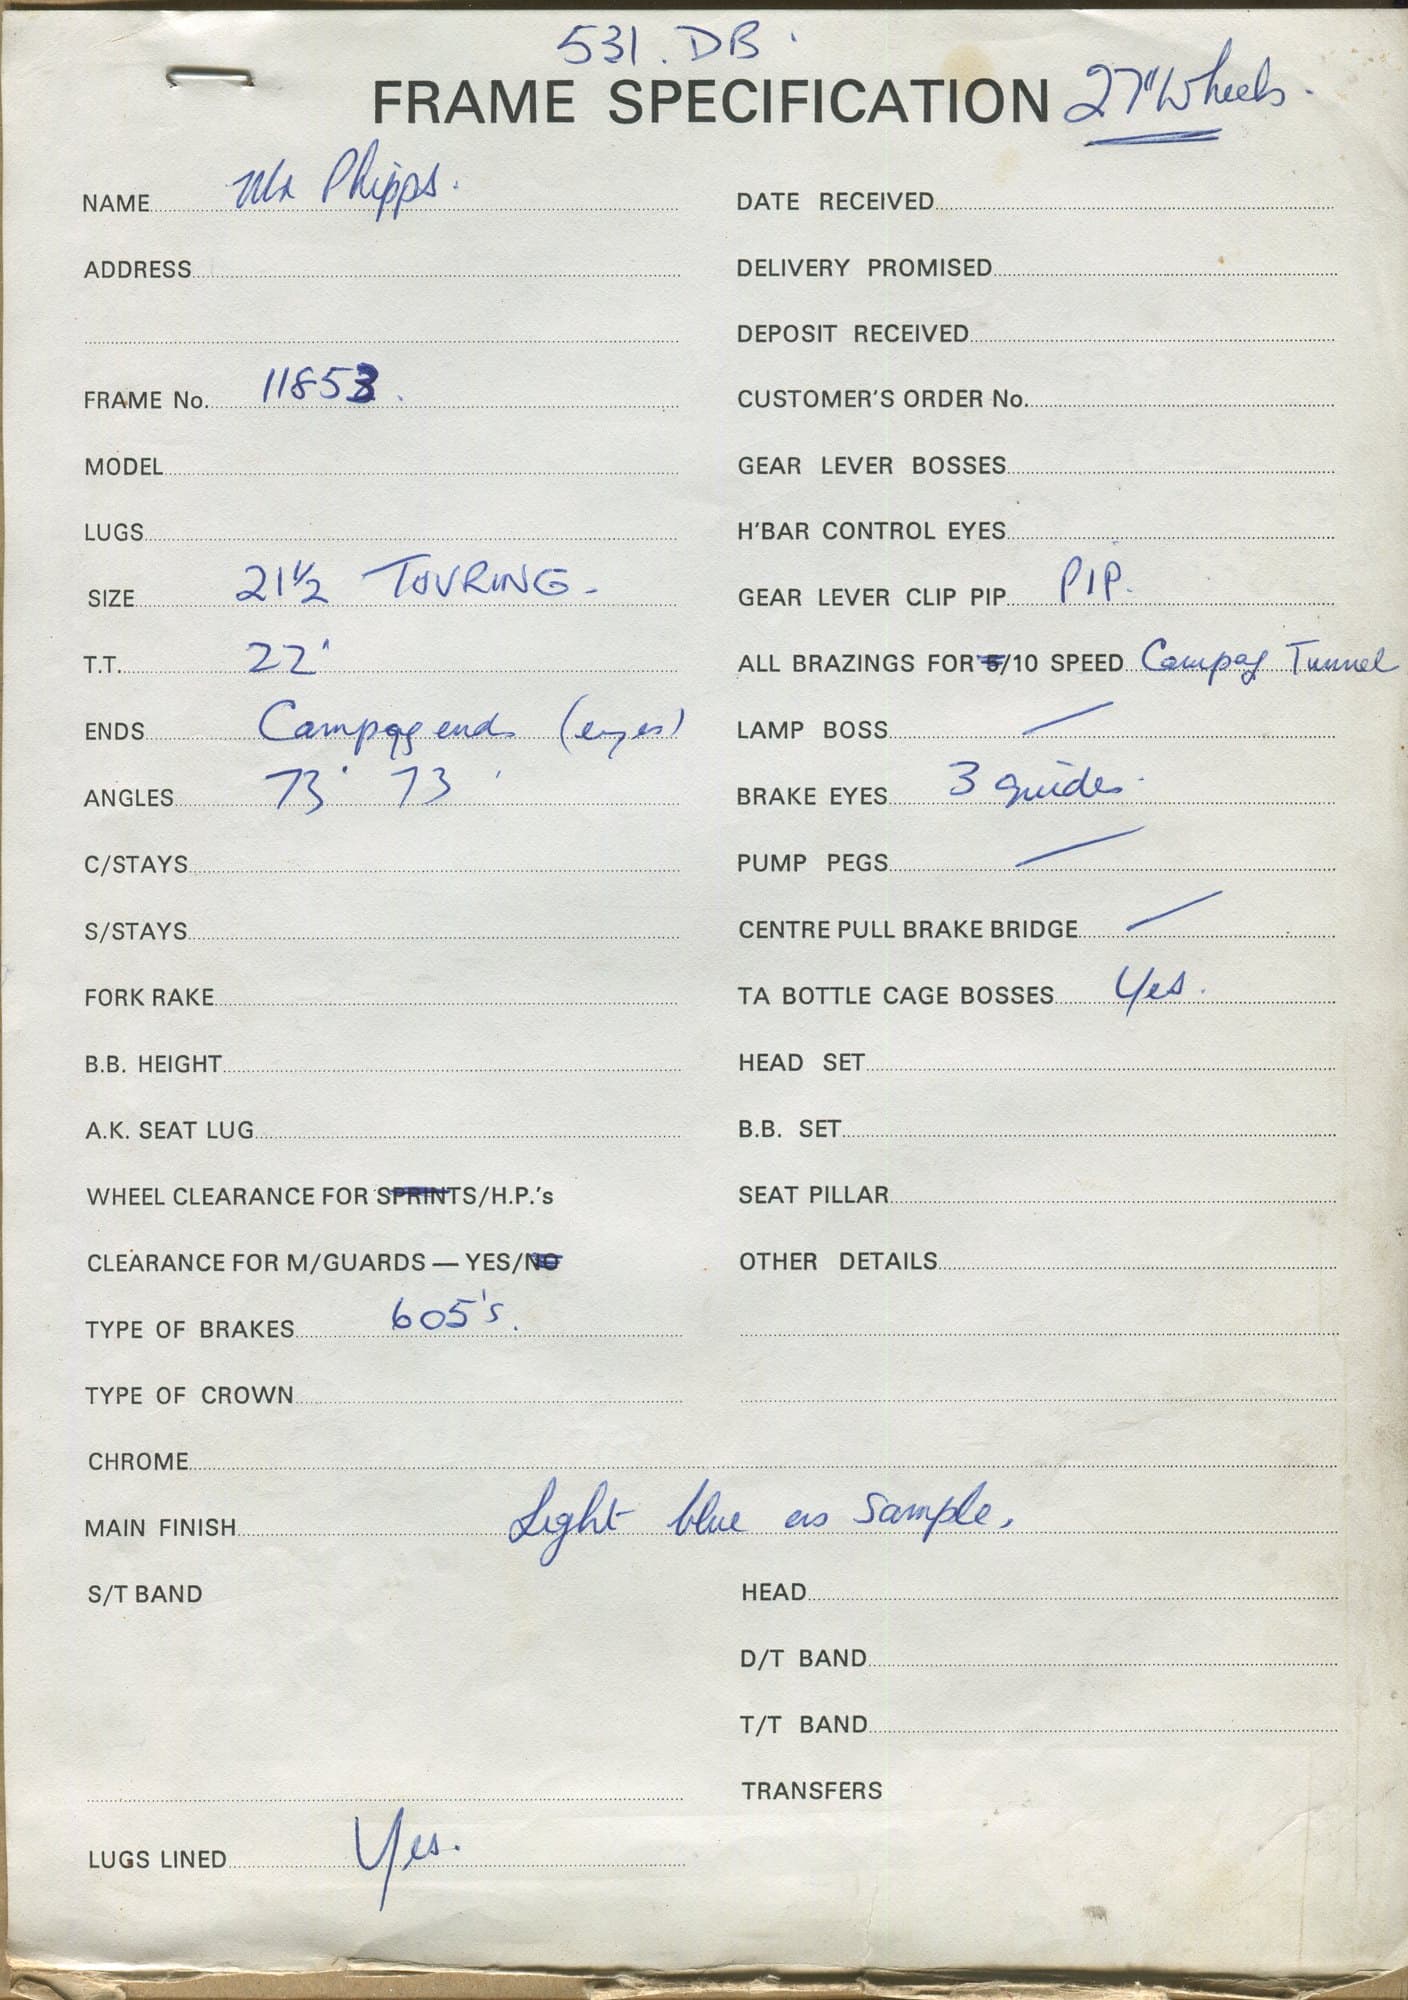 531. DB.
FRAME SPECIFICATION 27" Wheels.
NAME Mr Phipps.
ADDRESS
FRAME No. 11853.
MODEL
LUGS
SIZE 21½ TOURING.
T.T. 22"
ENDS Campag ends (eyes)
ANGLES 73° 73°
C/STAYS
S/STAYS
FORK RAKE
B.B. HEIGHT
A.K. SEAT LUG
WHEEL CLEARANCE FOR SPRINTS/H.P.'s
CLEARANCE FOR M/GUARDS — YES/NO
TYPE OF BRAKES 605's.
TYPE OF CROWN
DATE RECEIVED
DELIVERY PROMISED
DEPOSIT RECEIVED
CUSTOMER'S ORDER No.
GEAR LEVER BOSSES
H'BAR CONTROL EYES
GEAR LEVER CLIP PIP PIP.
ALL BRAZINGS FOR 5/10 SPEED Campag Tunnel
LAMP BOSS /
BRAKE EYES 3 guides.
PUMP PEGS /
CENTRE PULL BRAKE BRIDGE /
TA BOTTLE CAGE BOSSES Yes.
HEAD SET
B.B. SET
SEAT PILLAR
OTHER DETAILS
CHROME
MAIN FINISH Light blue as sample.
S/T BAND
LUGS LINED Yes.
HEAD
D/T BAND
T/T BAND
TRANSFERS